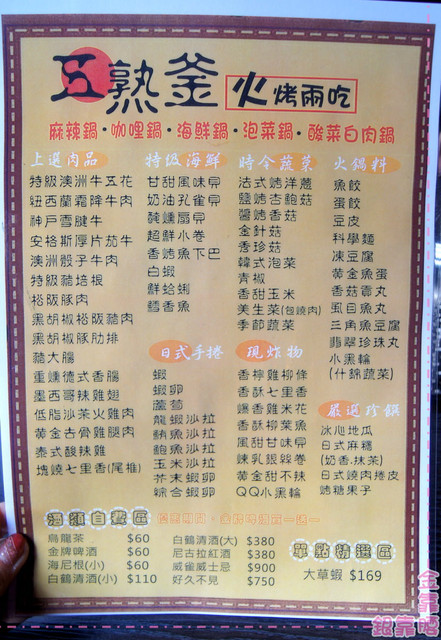 五熟釜 火烤兩吃
麻辣鍋・咖哩鍋・海鮮鍋・泡菜鍋・酸菜白肉鍋
上選肉品
特級澳洲牛五花
紐西蘭霜降牛肉
神戶雪腱牛
安格斯厚片茄牛
澳洲骰子牛肉
特級豬培根
裕阪豚肉
黑胡椒裕阪豬肉
黑胡椒豚肋排
豬大腸
重燻德式香腸
墨西哥辣雞翅
低脂沙茶火雞肉
黃金去骨雞腿肉
泰式酸辣雞
塊燒七里香(尾椎)
特級海鮮
甘甜風味貝
奶油孔雀貝
醃燻扇貝
超鮮小卷
香烤魚下巴
白蝦
鮮蛤蜊
鱈香魚
時令蔬菜
法式烤洋蔥
鹽烤杏鮑菇
醬烤香菇
金針菇
香珍菇
韓式泡菜
青椒
香甜玉米
美生菜(包燒肉)
季節蔬菜
火鍋料
魚餃
蛋餃
豆皮
科學麵
凍豆腐
黃金魚蛋
香菇貢丸
虱目魚丸
三角魚豆腐
翡翠珍珠丸
小黑輪
(什錦蔬菜)
日式手捲
蝦
蝦卵
蘆筍
龍蝦沙拉
鮪魚沙拉
鮑魚沙拉
玉米沙拉
芥末蝦卵
綜合蝦卵
現炸物
香檸雞柳條
香酥七里香
爆香雞米花
香酥柳葉魚
風甜甘味貝
煉乳銀絲卷
黃金甜不辣
QQ小黑輪
嚴選珍饌
冰心地瓜
日式麻糬
(奶香.抹茶)
日式燒肉捲皮
烤糖果子
酒類自費區
烏龍茶 $60
金牌啤酒 $60
海尼根(小) $60
白鶴清酒(小) $110
白鶴清酒(大) $380
尼古拉紅酒 $380
威雀威士忌 $900
好久不見 $750
單點精選區
大草蝦 $169
金靠
銀靠吧